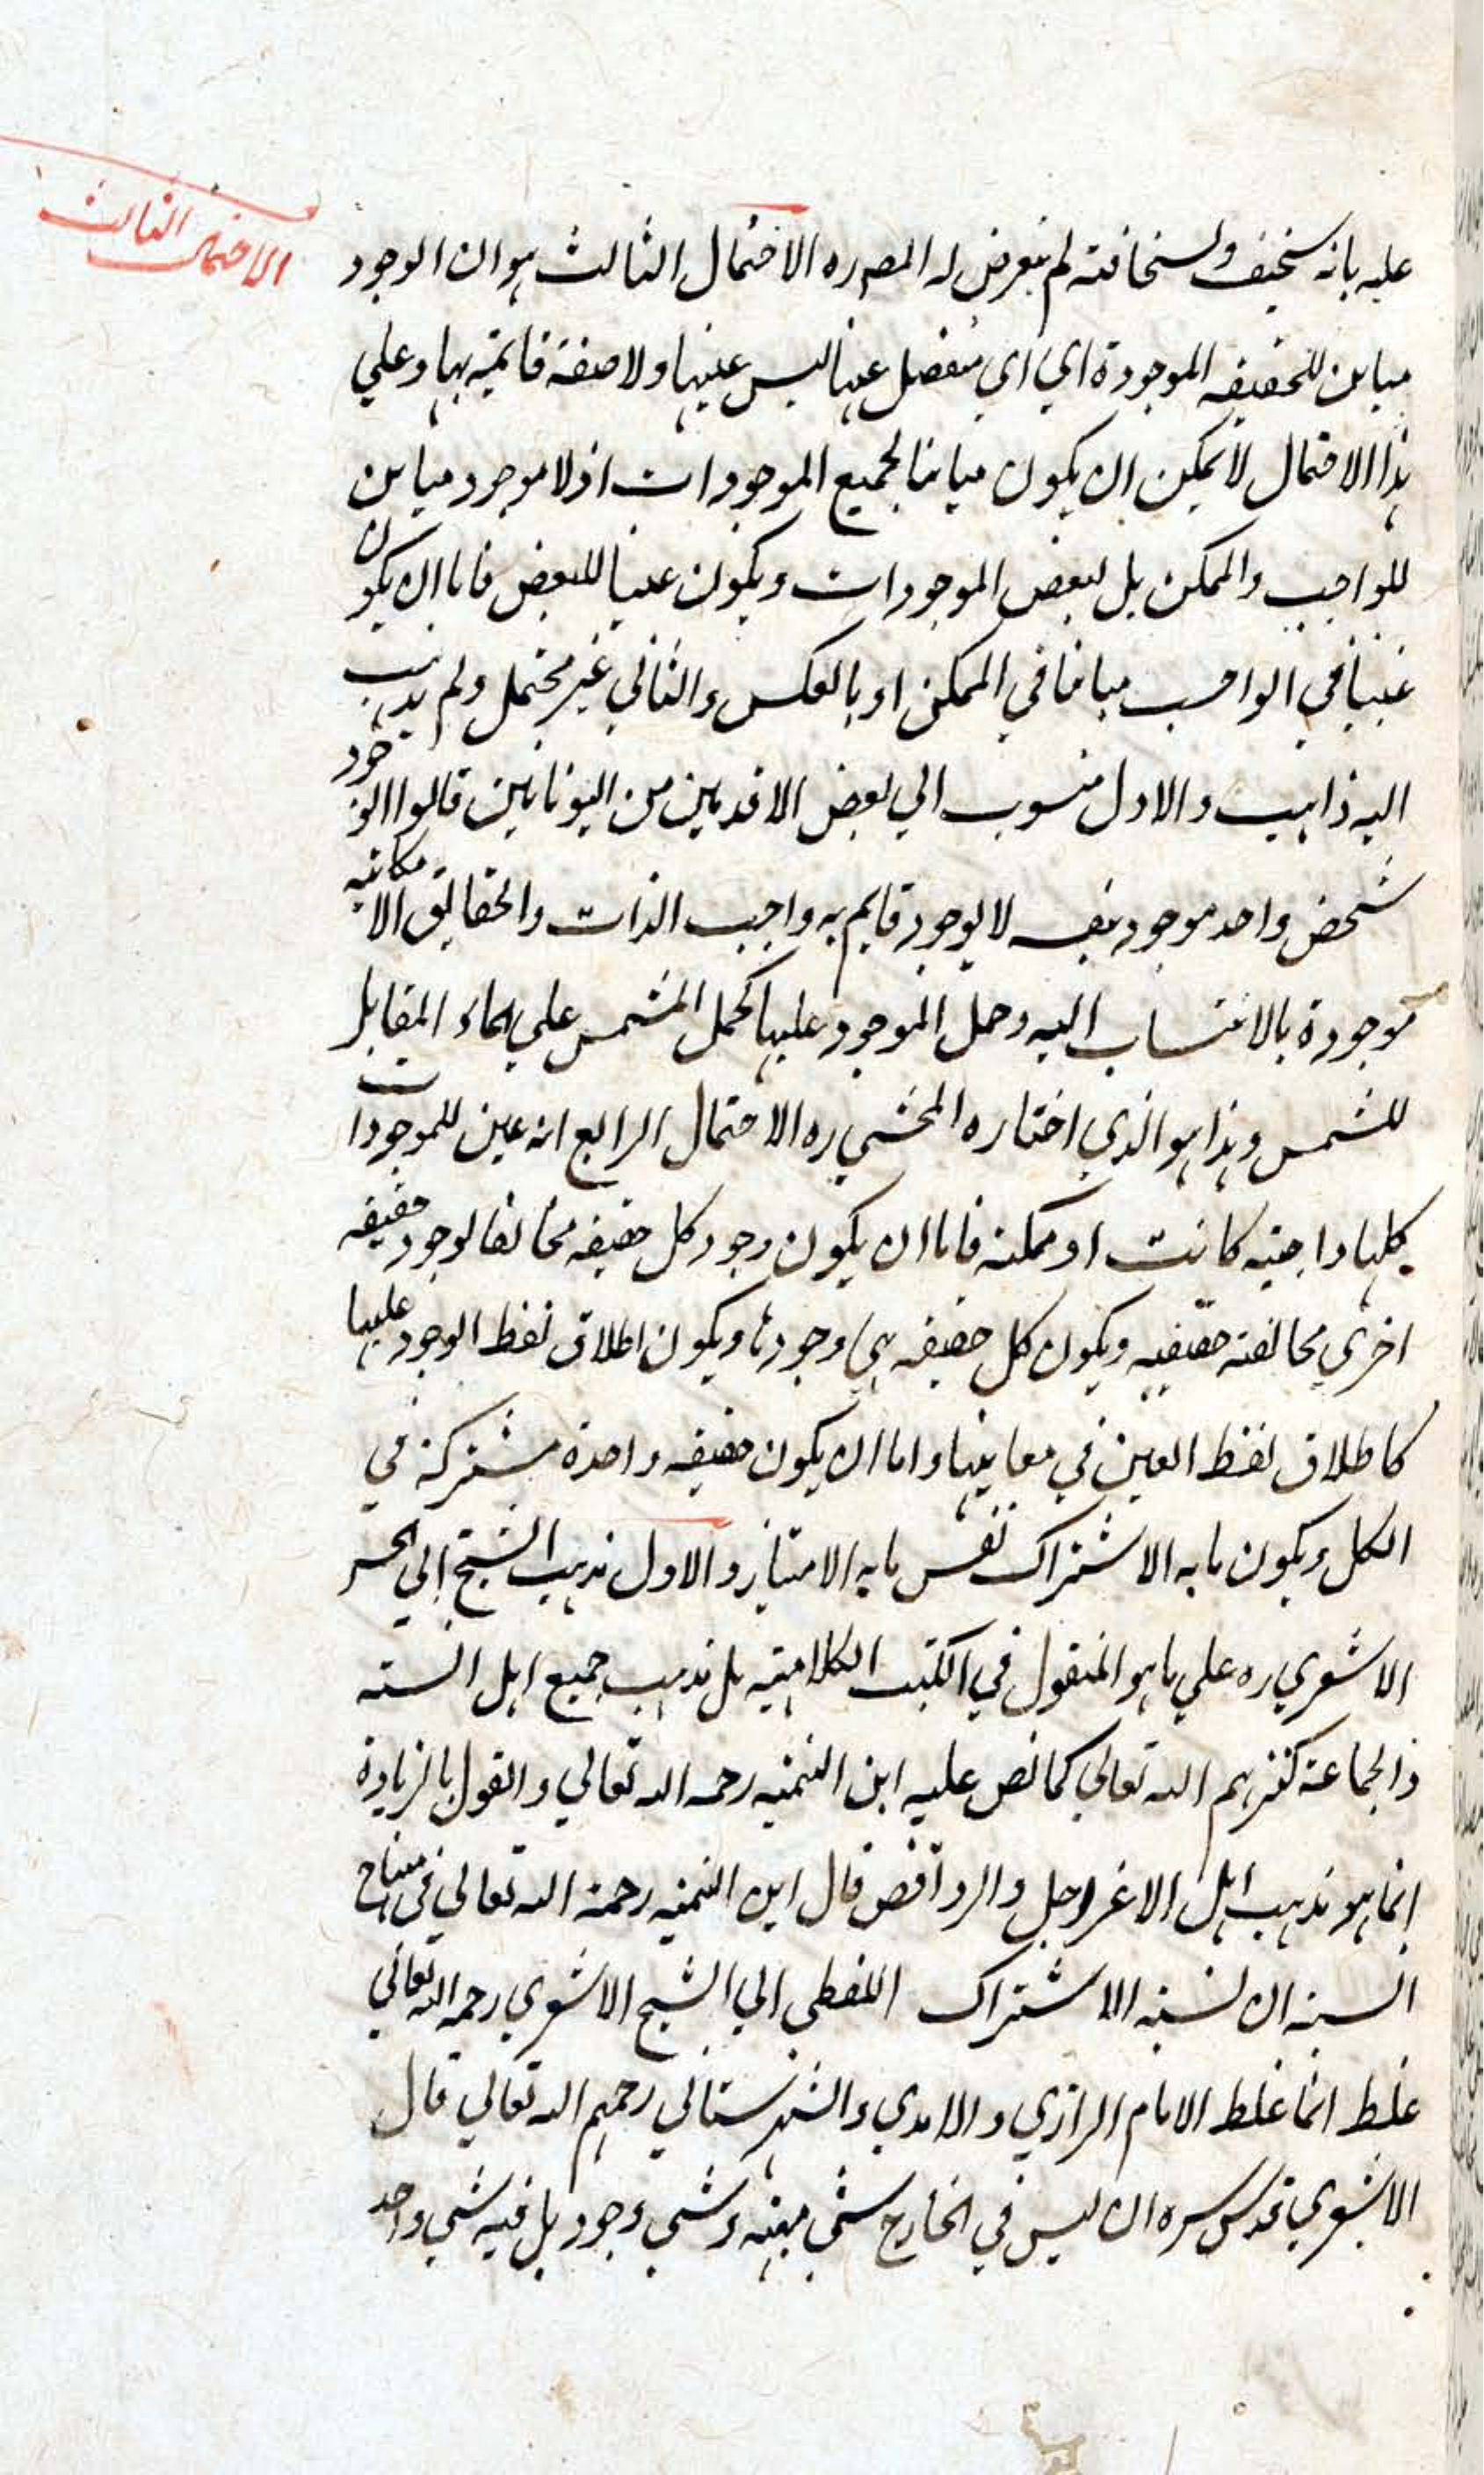 الاحتمال الثالث
عليه بانه سخيف ولسخافته لم يتعرض له المصره الاحتمال الثالث هو ان الوجود
مباين للحقيقه الموجودة اي اي منفصل عنها ليس عينها ولا صفة قايمة بها وعلي
هذا الاحتمال لا يمكن ان يكون مباينا لجميع الموجودات اذ لا موجود مباين
للواجب والممكن بل لبعض الموجودات ويكون عينا للبعض فاما ان يكون
عينا في الواجب مباينا في الممكن او بالعكس والثاني غير محتمل ولم يذهب
اليه ذاهب والاول منسوب الي بعض الاقدمين من اليونانين قالوا الوجود
شخص واحد موجود بنفسه لا بوجود قايم به واجب الذات والحقايق الامكانيه
موجودة بالانتساب اليه وحمل الموجود عليها كحمل المشمس علي الماء المقابل
للشمس وهذا هو الذي اختاره المحشي ره الاحتمال الرابع انه عين للموجودات
كلها واجبه كانت او ممكنه فاما ان يكون وجود كل حقيقه مخالفا لوجود حقيقه
اخري مخالفته حقيقيه ويكون كل حقيقه هي وجودها ويكون اطلاق لفظ الوجود عليها
كاطلاق لفظ العين في معانيها واما ان يكون حقيقه واحدة مشتركة في
الكل ويكون ما به الاشتراك نفس ما به الامتياز والاول مذهب الشيخ ابي الحسن
الاشعري ره علي ما هو المنقول في الكتب الكلاميه بل مذهب جميع اهل السنه
والجماعة كثرهم الله تعالي كما نص عليه ابن التيميه رحمه الله تعالي والقول بالزيادة
انما هو مذهب اهل الاعتزال والروافض قال ابن التيميه رحمة الله تعالي في منهاج
السنه ان نسبه الاشتراك اللفظي الي الشيخ الاشعري رحمه الله تعالي
غلط انما غلط الامام الرازي والامدي والشهرستاني رحمهم الله تعالي قال
الاشعري قدس سره ان ليس في الخارج شي مهيته وشي وجود بل فيه شي واحد